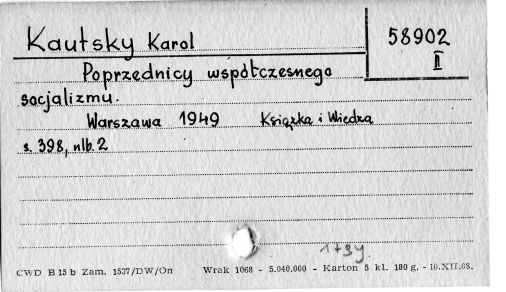 Kautsky Karol
58902
II
Poprzednicy współczesnego
socjalizmu.
Warszawa 1949 Książka i Wiedza
s. 398, nlb. 2
CWD B 15 b Zam. 1537/DW/On Wrak 1068 - 5.040.000 - Karton 5 kl. 180 g. - 10.XII.68.